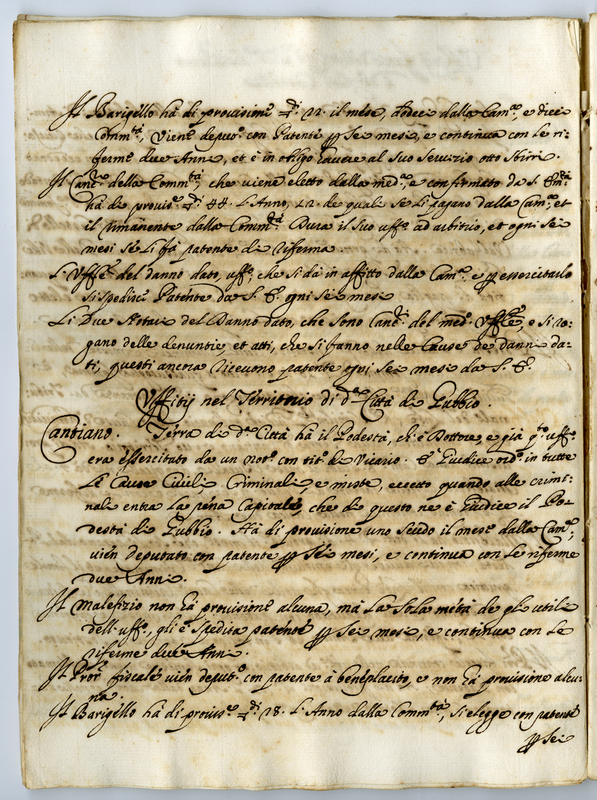 Il Barigello hà di provisione ▽di 22. il mese, dodeci dalla Cam.ra, e dieci
Comm.tà, viene deput.o con Patente p Sei mesi, e continua con le ri-
ferme due Anni, et è in obligo havere al suo servizio otto sbirri.
Il Canc.re della Comm.tà, che viene eletto dalla med.a, e confirmato da S. Em.za
hà de provis.e ▽di 44. l'Anno, 12. de quali se li pagano dalla Cam.ra, et
il rimanente dalla Comm.tà. Dura il suo uff.o ad arbitrio, et ogni sei
mesi se li fà patente di riferma.
L'Uff.le del danno dato, uff.o, che si dà in affitto dalla Cam.ra e p essercitarlo
si spedisce Patente da S. E. ogni sei mesi
Li due Notari del Danno dato, che sono Canc.ri del med.o Uff.le, e si ro-
gano delle denuntie et atti, che si fanno nelle Cause de danni da-
ti, questi ancora ricevono patente ogni sei mesi da S. E.
Uffitij nel Territorio di d.a Città di Gubbio.
Cantiano. Terra di d.a Città hà il Podestà, ch'è Dottore, e già q.to uff.o
era essercitato da un Not.o con tit.o di Vicario. È Giudice ord.o in tutte
le Cause Civili, Criminali, e miste, eccetto quando alle crimi-
nali entra la pena Capitale, che di questo ne è Giudice il Po-
destà di Gubbio. Hà di provisione uno scudo il mese dalla Cam.ra,
vien deputato con patente p Sei mesi, e continua con le riferme
due Anni.
Il Malefizio non hà provisione alcuna, mà la sola metà de gli utili
dell'uff.o, gli è spedita patente p Sei mesi, e continua con le
riferme due Anni.
Il Pror.e fiscale vien deput.o con patente à beneplacito, e non hà provisione alcu-
na.
Il Barigello hà di provis.e ▽di 28. l'Anno dalla Comm.tà, si elegge con patente
p Sei